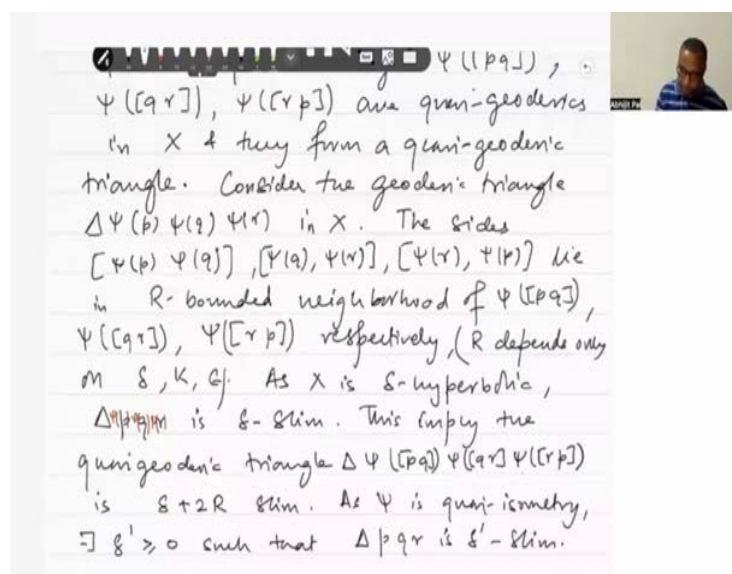 ψ([pq]),
ψ([qr]), ψ([rp]) are quasi-geodesics
in X & they form a quasi-geodesic
triangle. Consider the geodesic triangle
Δψ(p) ψ(q) ψ(r) in X. The sides
[ψ(p) ψ(q)], [ψ(q), ψ(r)], [ψ(r), ψ(p)] lie
in R-bounded neighborhood of ψ([pq]),
ψ([qr]), ψ([rp]) respectively, (R depends only
on δ, K, ϵ). As X is δ-hyperbolic,
Δ is δ-slim. This imply the
quasigeodesic triangle Δ ψ([pq]) ψ([qr] ψ([rp])
is δ+2R slim. As ψ is quasi-isometry,
∃ δ' ≥ 0 such that Δpqr is δ'-slim.
Abhijit Pal